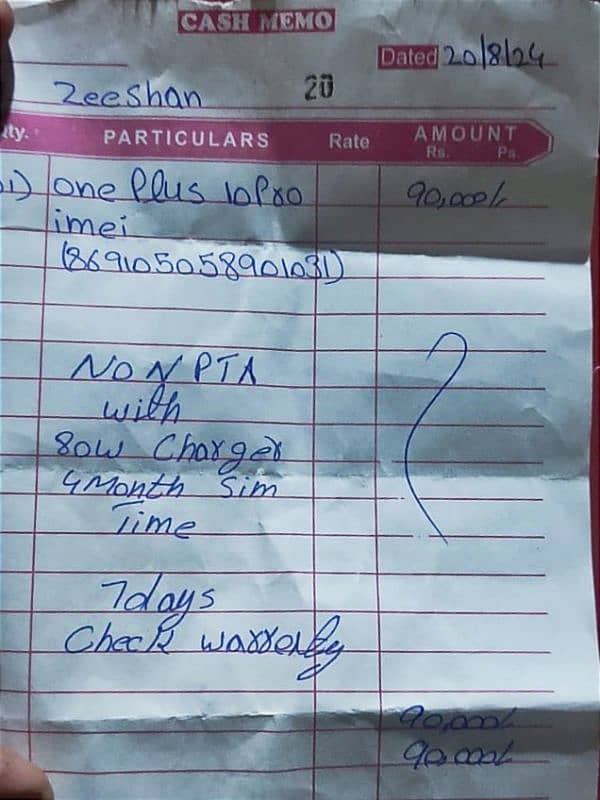 CASH MEMO
Dated 20/8/24
Zeeshan 20
Qty. PARTICULARS Rate AMOUNT
Rs. Ps.
01) one Plus 10 Pro 90,000/-
imei
(869105058901031)
NON PTA
with
80W Charger
4 Month Sim
Time
7 days
Check warrenty
90,000/-
90,000/-